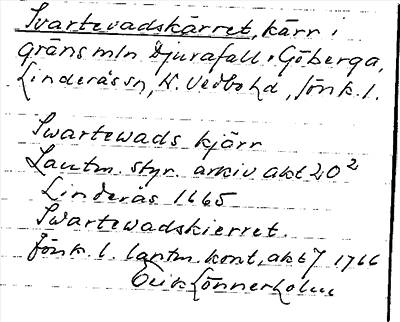 Svartevadskärret, kärr i
gräns mln Djurafall o Göberga,
Linderås sn, N. Vedbo hd, Jönk. l.
Swartewads kjärr
Lantm. styr. arkiv akt 20²
Linderås 1665
Swartewadskierret.
Jönk. l. lantm. kont, akt 7 1766
Erik Lönnerholm